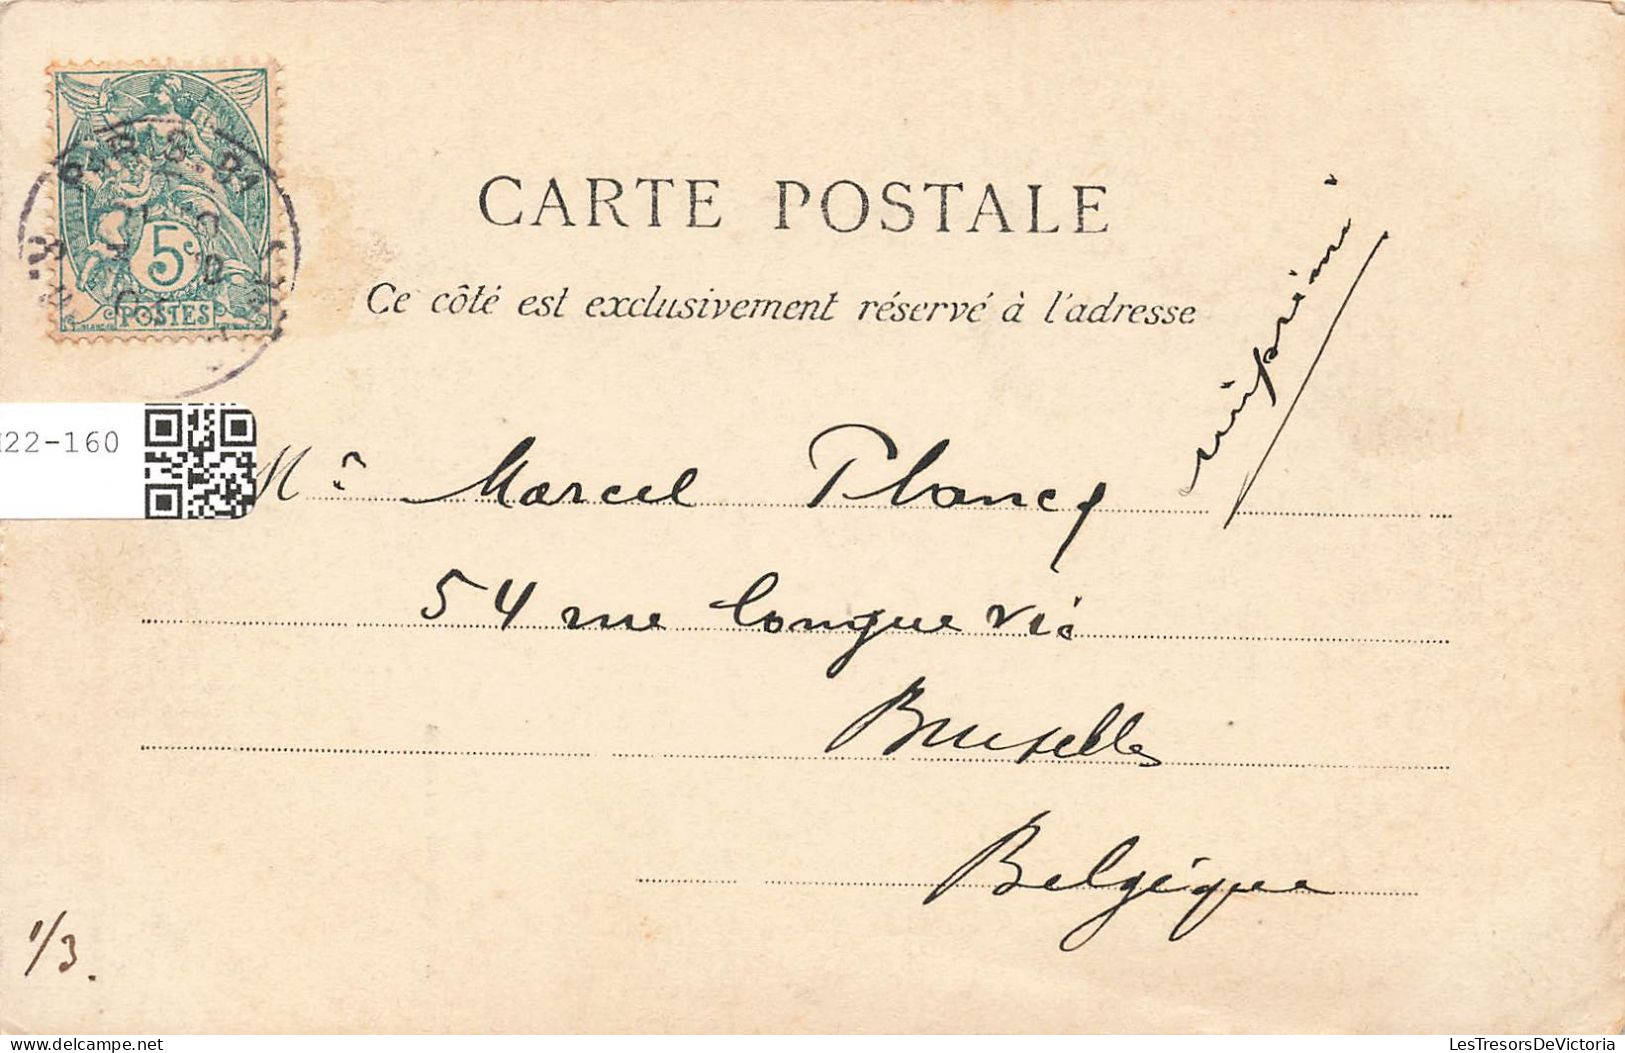 PARIS-81
5c
POSTES
CARTE POSTALE
Ce côté est exclusivement réservé à l'adresse
22-160
Mr Marcel Plancq
54 rue Longue Vie
Bruxelles
Belgique
1/3.
LesTresorsDeVictoria